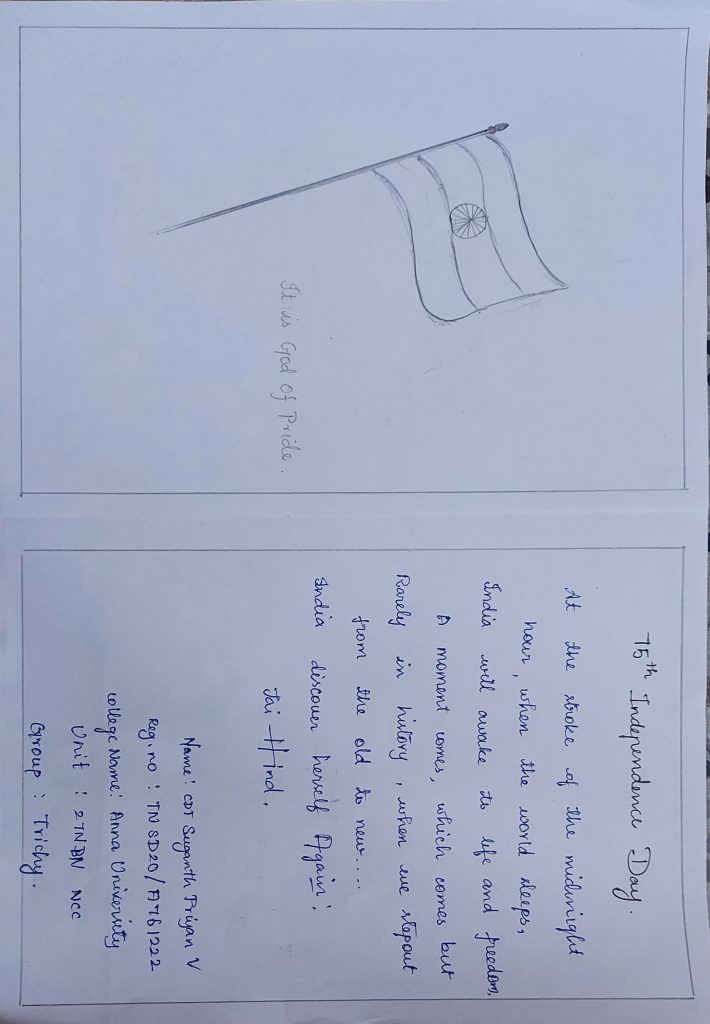 It is God of Pride.
75th Independence Day.
At the stroke of the midnight
hour, when the world sleeps,
India will awake to life and freedom,
A moment comes, which comes but
Rarely in history, when we stepout
from the old to new....
India discover herself Again!
Jai Hind.
Name: CDT Suganth Priyan V
Reg. no : TN SD20/A761222
College Name: Anna University
Unit : 2TNBN NCC
Group : Trichy.